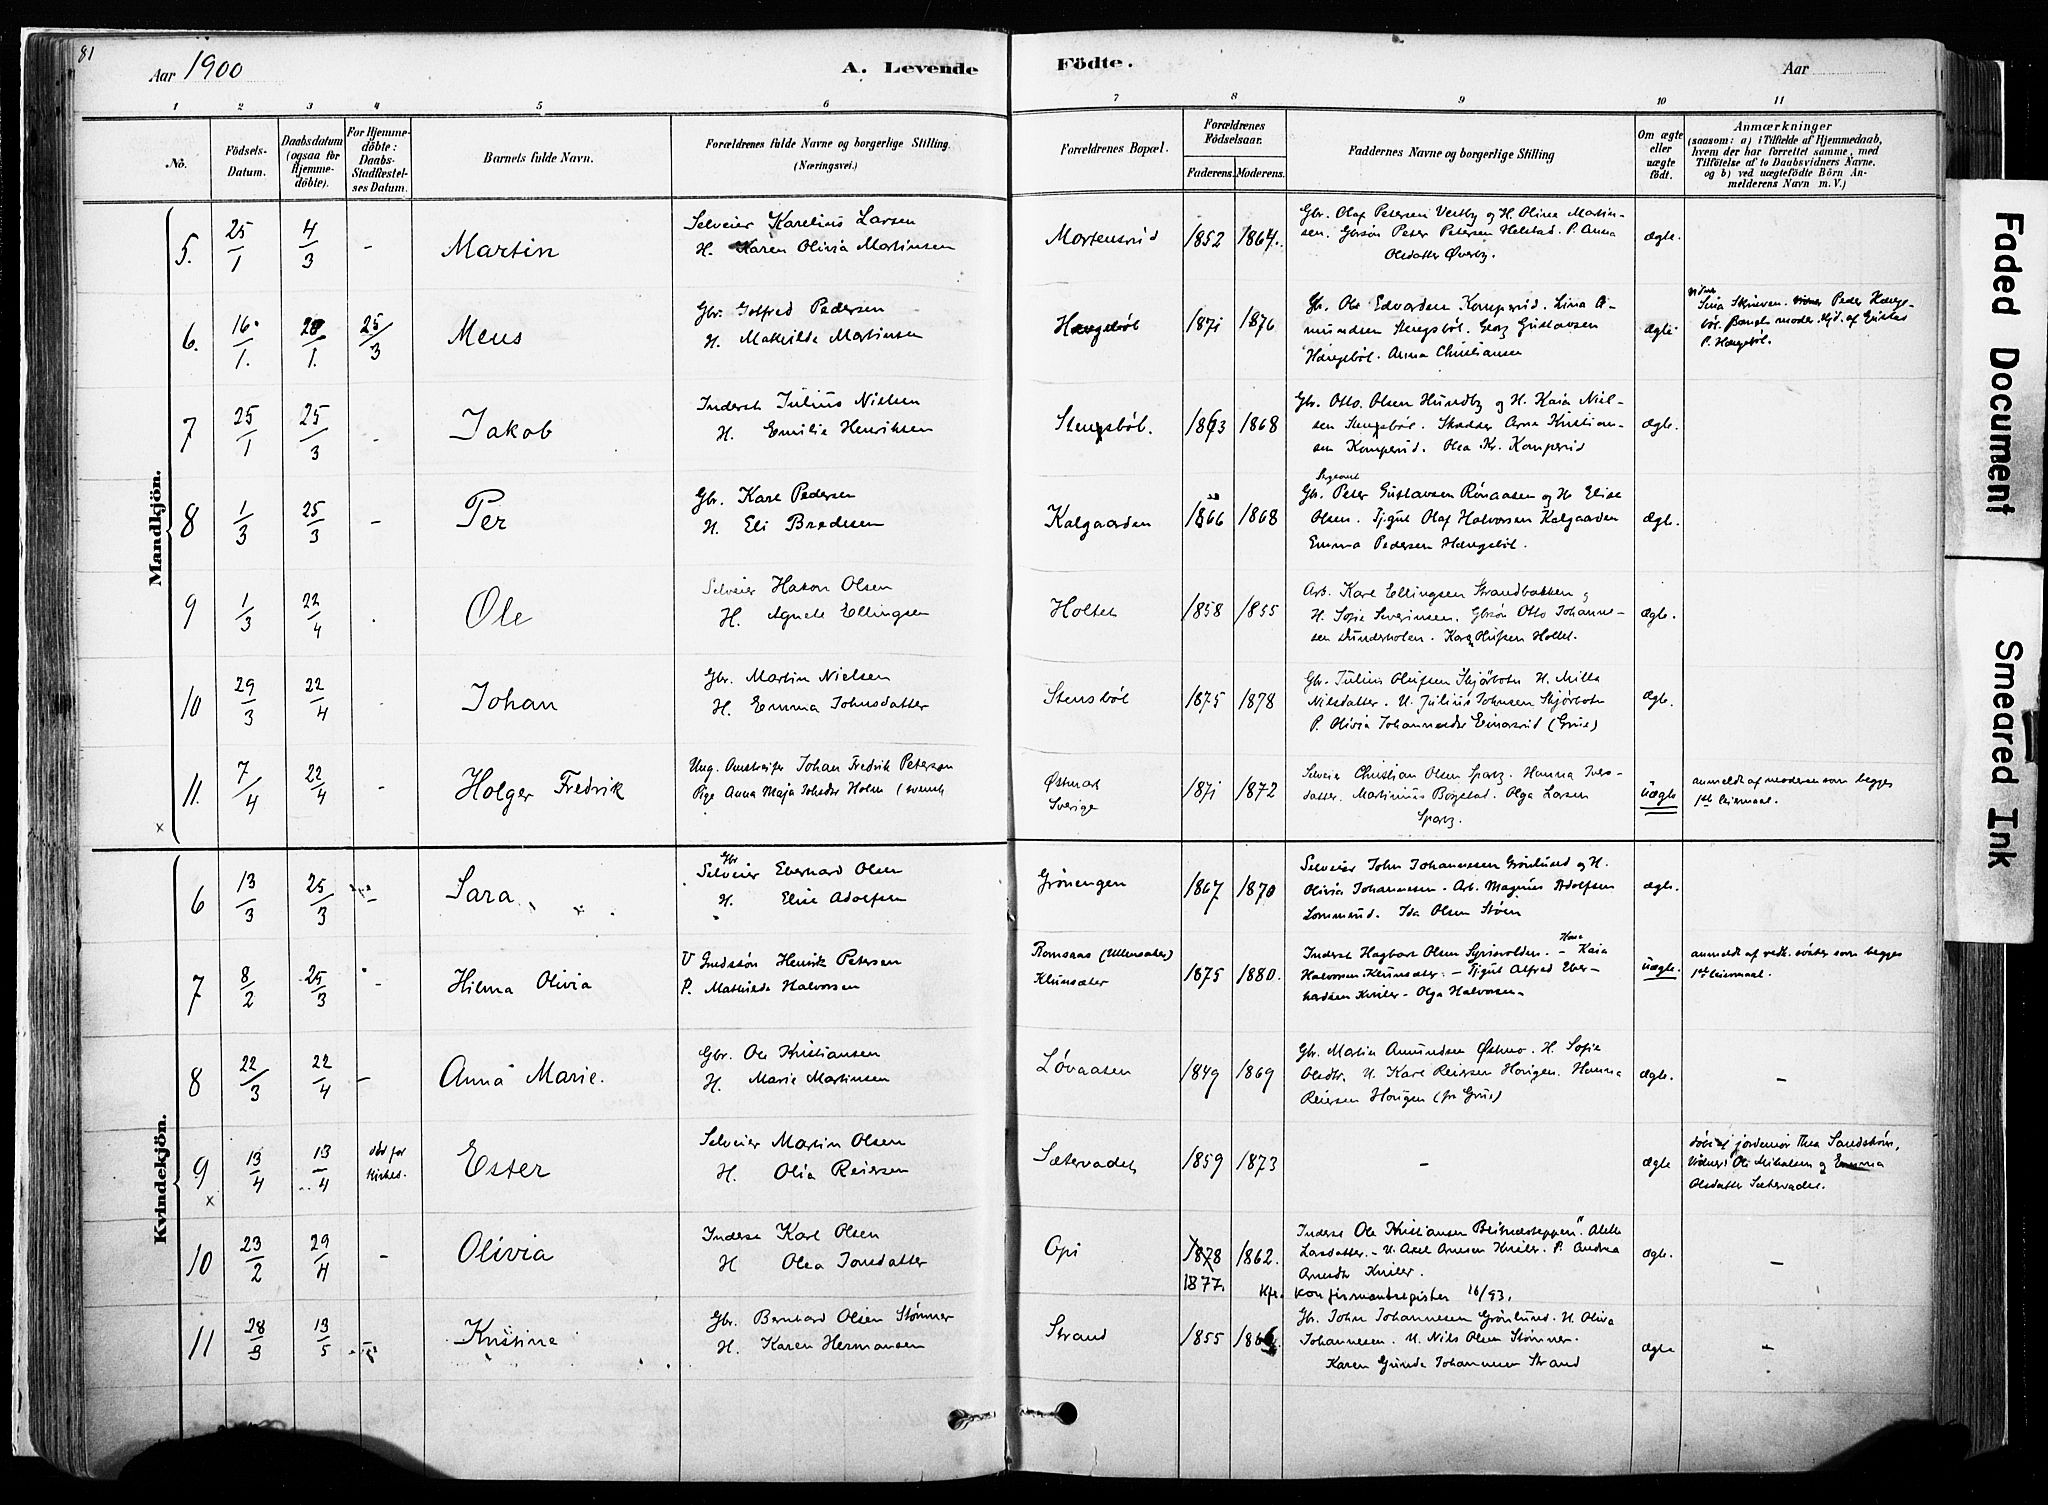 81
Aar 1900
A. Levende Födte.
Aar
1 2 3 4 5 6 7 8 9 10 11
No.
Födsels-Datum.
Daabsdatum (ogsaa for Hjemme-döbte).
For Hjemme-döbte: Daabs-Stadfæstel-ses Datum.
Barnets fulde Navn.
Forældrenes fulde Navne og borgerlige Stilling. (Næringsvei.)
Forældrenes Bopæl.
Forældrenes Födselsaar.
Faderens. Moderens.
Faddernes Navne og borgerlige Stilling
Om ægte eller uægte födt.
Anmærkninger
(saasom: a) i Tilfælde af Hjemmedaab,
hvem der har forrettet samme, med
Tilföielse af to Daabsvidners Navne.
og b) ved uægtefödte Börn An-
melderens Navn m. V.)
Mandkjön.
5. 25/1 4/3 - Martin
Selveier Karelius Larsen
H. Karen Olivia Martinsen
Mortensrud 1852 1864.
Gbr. Olaf Petersen Vestby og H. Olina Martin-
sen. Gbrsön Peter Petersen Holstad. P. Anna
Olsdatter Øverby.
ægte.
6. 16/1. 28/1. 25/3 Meus
Gbr. Gotfred Pedersen
H. Mathilde Martinsen
Hængeböl 1871 1876
Gbr. Ole Edvardsen Kamperud. Lina A-
mundsen Stengsböl. Georg Gustavsen
Hængeböl. Anna Christiansen
ægte
Peder Hænge-
böl. Barnets moder. Hjd. af Gustav
P. Hængeböl.
7 25/1 25/3 - Jakob
Inderst Julius Nielsen
H. Emilie Henriksen
Stengsböl. 1863 1868
Gbr. Otto Olsen Hundby og H. Kaia Niel-
sen Stengsböl. Skrædder Arne Kristian-
sen Kamperud. Olea Kr. Kamperud
ægte.
8 1/3 25/3 - Per
Gbr. Karl Pedersen
H. Eli Bredesen
Kalgaarden 1866 1868
Sergeant
Gbr. Peter Gustavsen Rönaasen og H. Elise
Olsen. Tjgut Olaf Halvorsen Kalgaarden
Emma Pedersen Hængeböl.
ægte.
9 1/3 22/4 . Ole
Selveier Hakon Olsen
H. Agnete Ellingsen
Holtet 1858 1855
Arb. Karl Ellingsen Strandbakken og
H. Sofie Severinsen. Gbrsön Otto Johanne-
sen Dunderholen. Kari Olufsen Holtet.
ægte.
10 29/3 22/4 Johan
Gbr. Martin Nielsen
H. Emma Johnsdatter
Stensböl 1875 1878
Gbr. Julius Olufsen Skjörboten H. Milla
Nilsdatter. U. Julius Johnsen Skjörboten
P. Olivia Johannesdtr Einarsrud (Grue)
ægte.
11. 7/4 22/4 - Holger Fredrik
x
Ung. Johan Fredrik Peterson
Pige Anna Maja Johsdtr Holm (svensk
Östmark
Sverige
1871 1872
Selveier Christian Olsen Hanna Iver-
datter. Martinius Bogstad. Olga Larsen
uægte
anmeldt af moderen som begges
1ste leiermaal.
Kvindekjön.
6 13/3 25/3 - Sara
Gbr
Selveier Eberhard Olsen
H. Elise Adolfsen
Grönengen 1867 1870
Selveier John Johannesen Grönlund og H.
Olivia Johannesen. Arb. Magnus Adolfsen
Lommerud. Ida Olsen Stöen
ægte.
7 8/2 25/3 - Hilma Olivia
U Henrik Petersen
P. Mathilde Halvorsen
Romsaas (Ullensaker)
Klumsæter
1875 1880.
Inderst Hagbart Olsen Kaia
Halvorsen Klumsæter. - Tjgut Alfred Eber-
hardsen Kniler - Olga Halvorsen.
uægte.
anmeldt af som begges
1ste leiermaal.
8 22/3 22/4 - Anna Marie.
Gbr. Ole Kristiansen
H. Marie Martinsen
Lövaasen 1849 1869
Gbr. Martin Amundsen Östmo. H. Sofie
Olsdtr. U. Karl Reiersen Horigen. Hanna
Reiersen Horigen (fra Grue)
ægte. -
9 13/4 13/4 Ester
x
Selveier Martin Olsen
H. Olia Reiersen
Sætervadet 1859 1873
-
ægte
döbt af jordemor Thea Sandström,
Vidner: Ole Mikalsen og Emma
Olsdatter Sætervadet.
10 23/2 29/4 - Olivia
Inderst Karl Olsen
H Olea Jonsdatter
Opi 1878 1862.
1877. Kfr. Konfirmantregister 16/93.
Inderst Ole Kristiansen
Larsdatter. - U. Axel Arnesen Kniler. P. Andrea
Arnesdtr Kniler.
ægte. -
11 28/3 13/5 Kristine
Gbr. Bernhard Olsen Stömner
H. Karen Hermansen
Strand 1855 1866
Gbr. John Johannesen Grönlund. H. Oliva
Johannesen. U. Nils Olsen Stömner.
Karen Gunda Johannesen Strand
ægte -
Faded Document
Smeared Ink